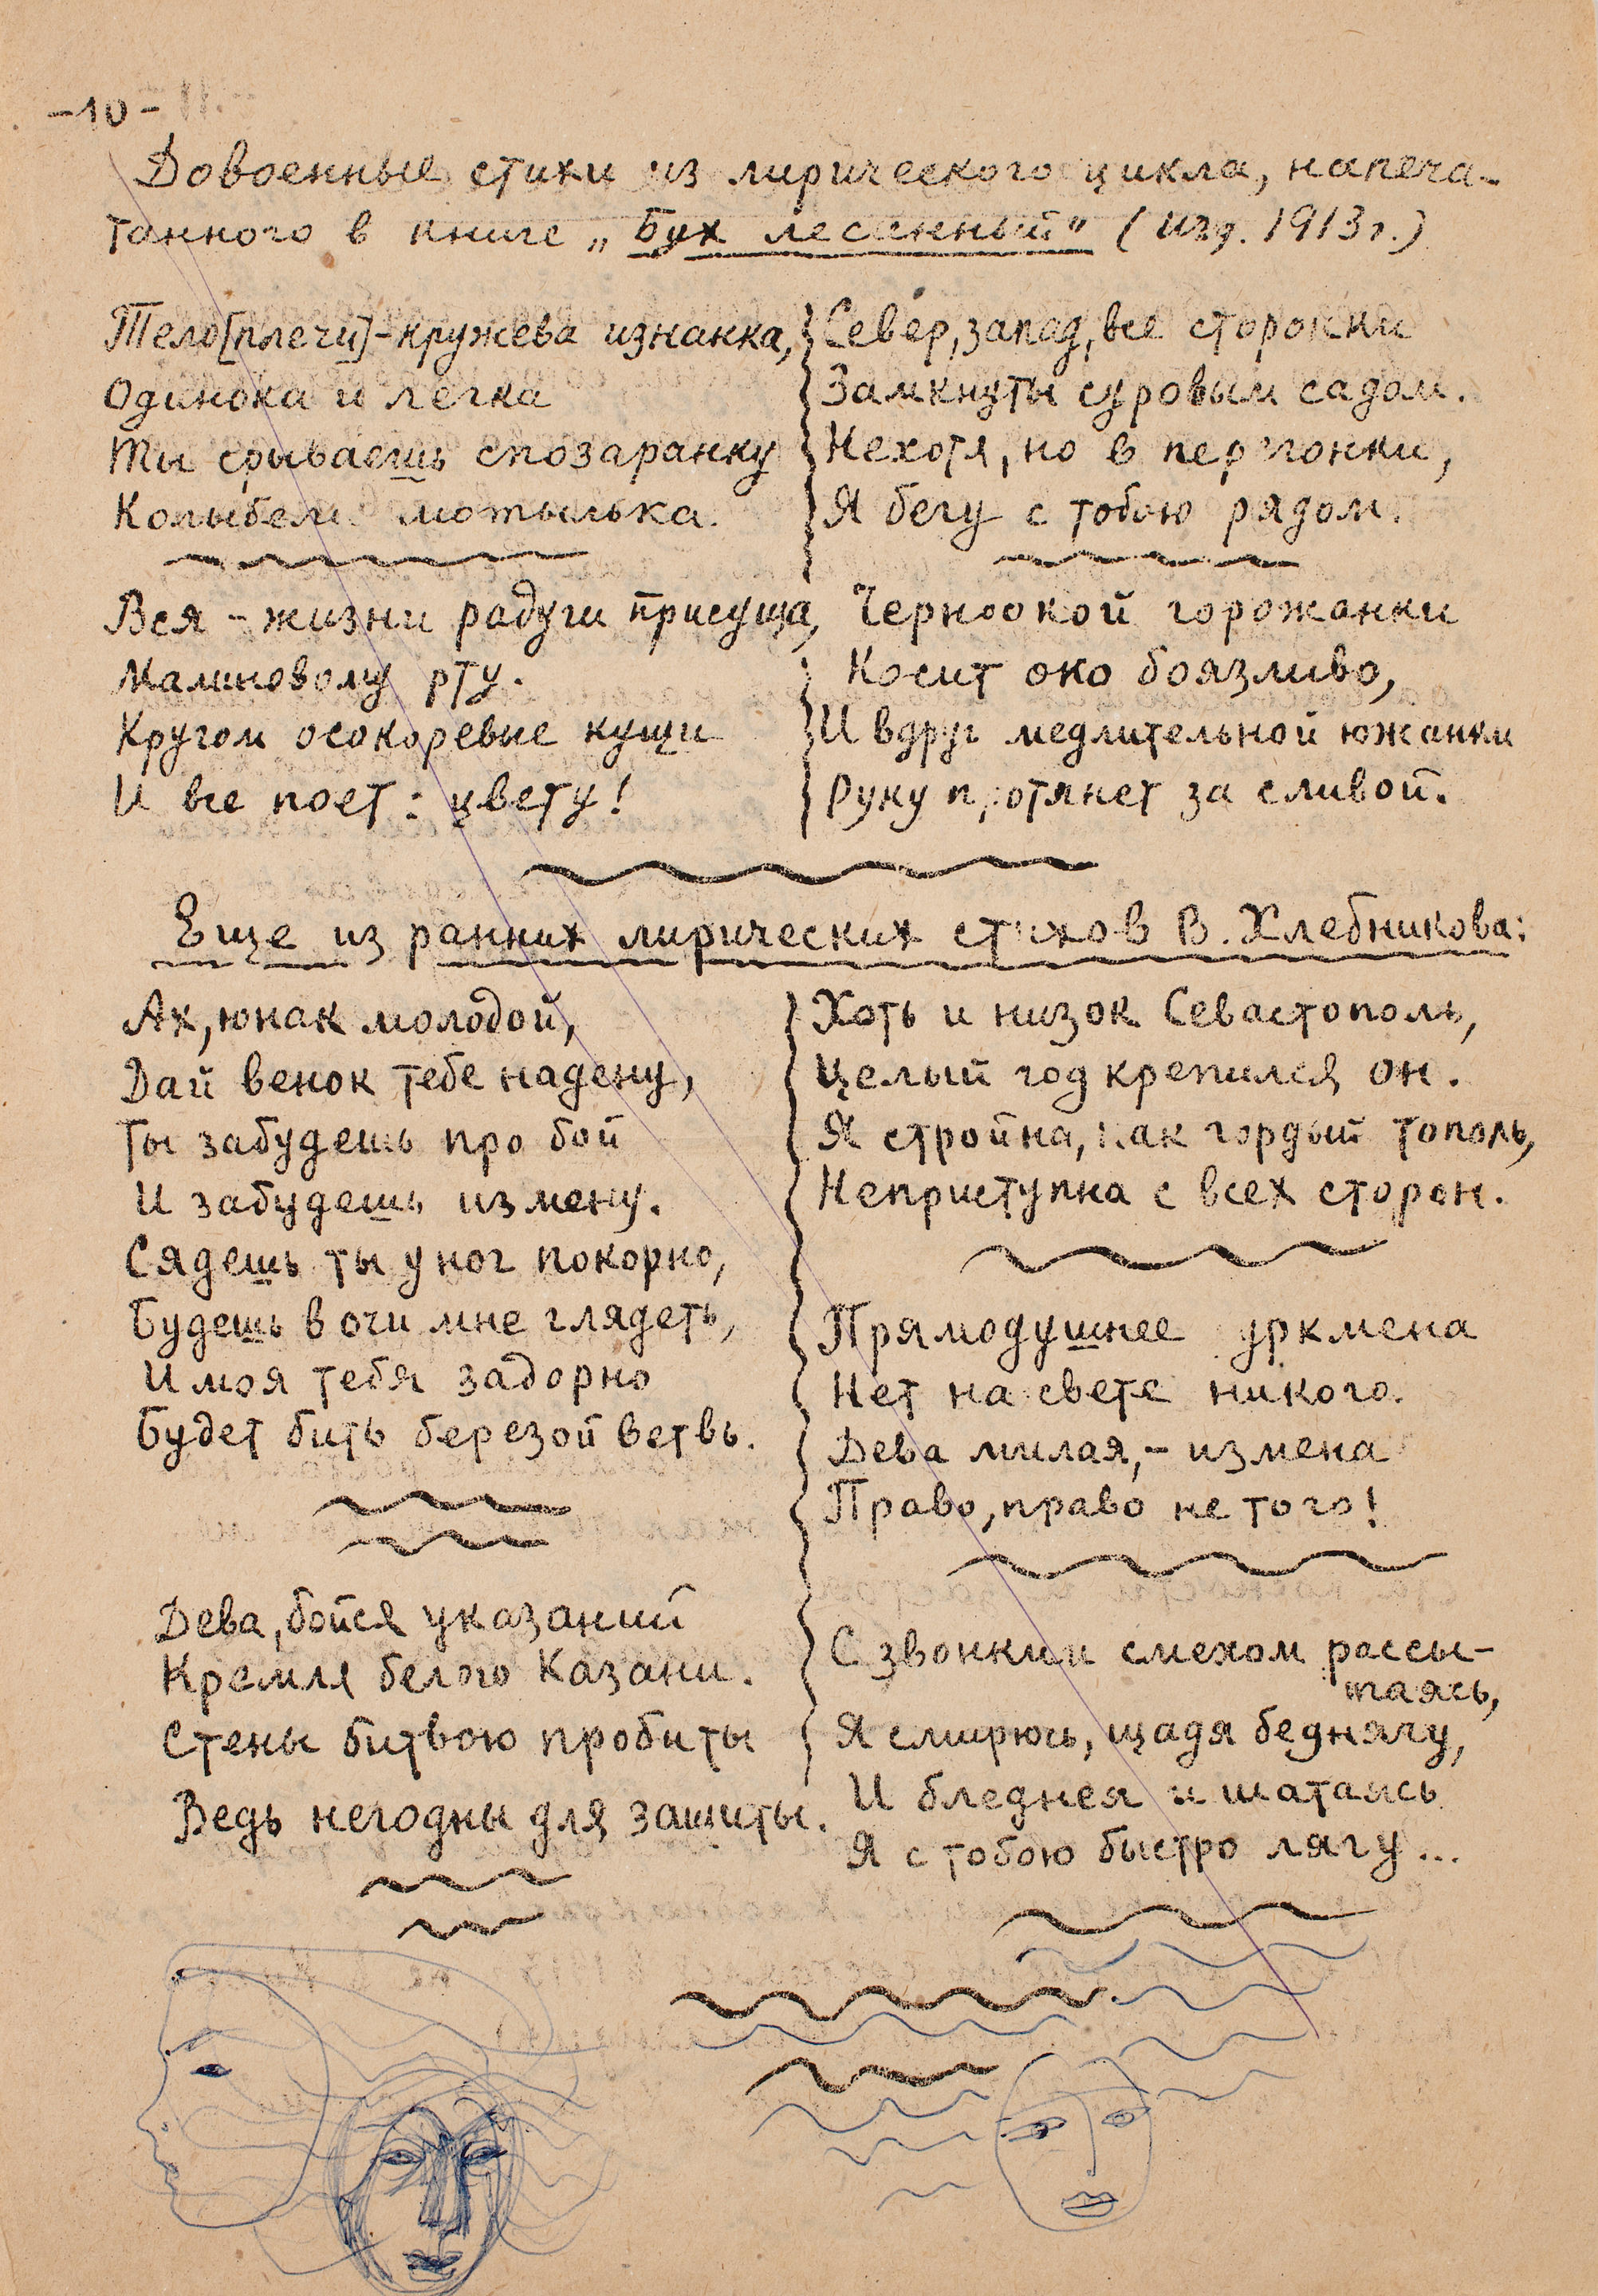 -10-
Довоенные стихи из лирического цикла, напеча-
танного в книге „Бух лесинный" (изд. 1913г.)
Тело[плечи]-кружева изнанка,
Одинока и легка
Ты срываешь спозаранку
Колыбели мотылька.
Вся - жизни радуги присуща,
Малиновому рту.
Кругом осокоревые кущи
И все поет: цвету!
Север, запад, все сторонки
Замкнуты суровым садом.
Нехотя, но в перегонки,
Я бегу с тобою рядом.
Черноокой горожанки
Косит око боязливо,
И вдруг медлительной южанки
Руку протянет за сливой.
Еще из ранних лирических стихов В. Хлебникова:
Ах, юнак молодой,
Дай венок тебе надену,
Ты забудешь про бой
И забудешь измену.
Сядешь ты у ног покорно,
Будешь в очи мне глядеть,
И моя тебя задорно
Будет бить березой ветвь.
Дева, бойся указаний
Кремля белого Казани.
Стены битвою пробиты
Ведь негодны для защиты.
Хоть и низок Севастополь,
Целый год крепился он.
Я стройна, как гордый тополь,
Неприступна с всех сторон.
Прямодушнее уркмена
Нет на свете никого.
Дева милая,- измена
Право, право не того!
С звонким смехом рассы-
паясь,
Я смирюсь, щадя беднягу,
И бледнея и шатаясь
Я с тобою быстро лягу...